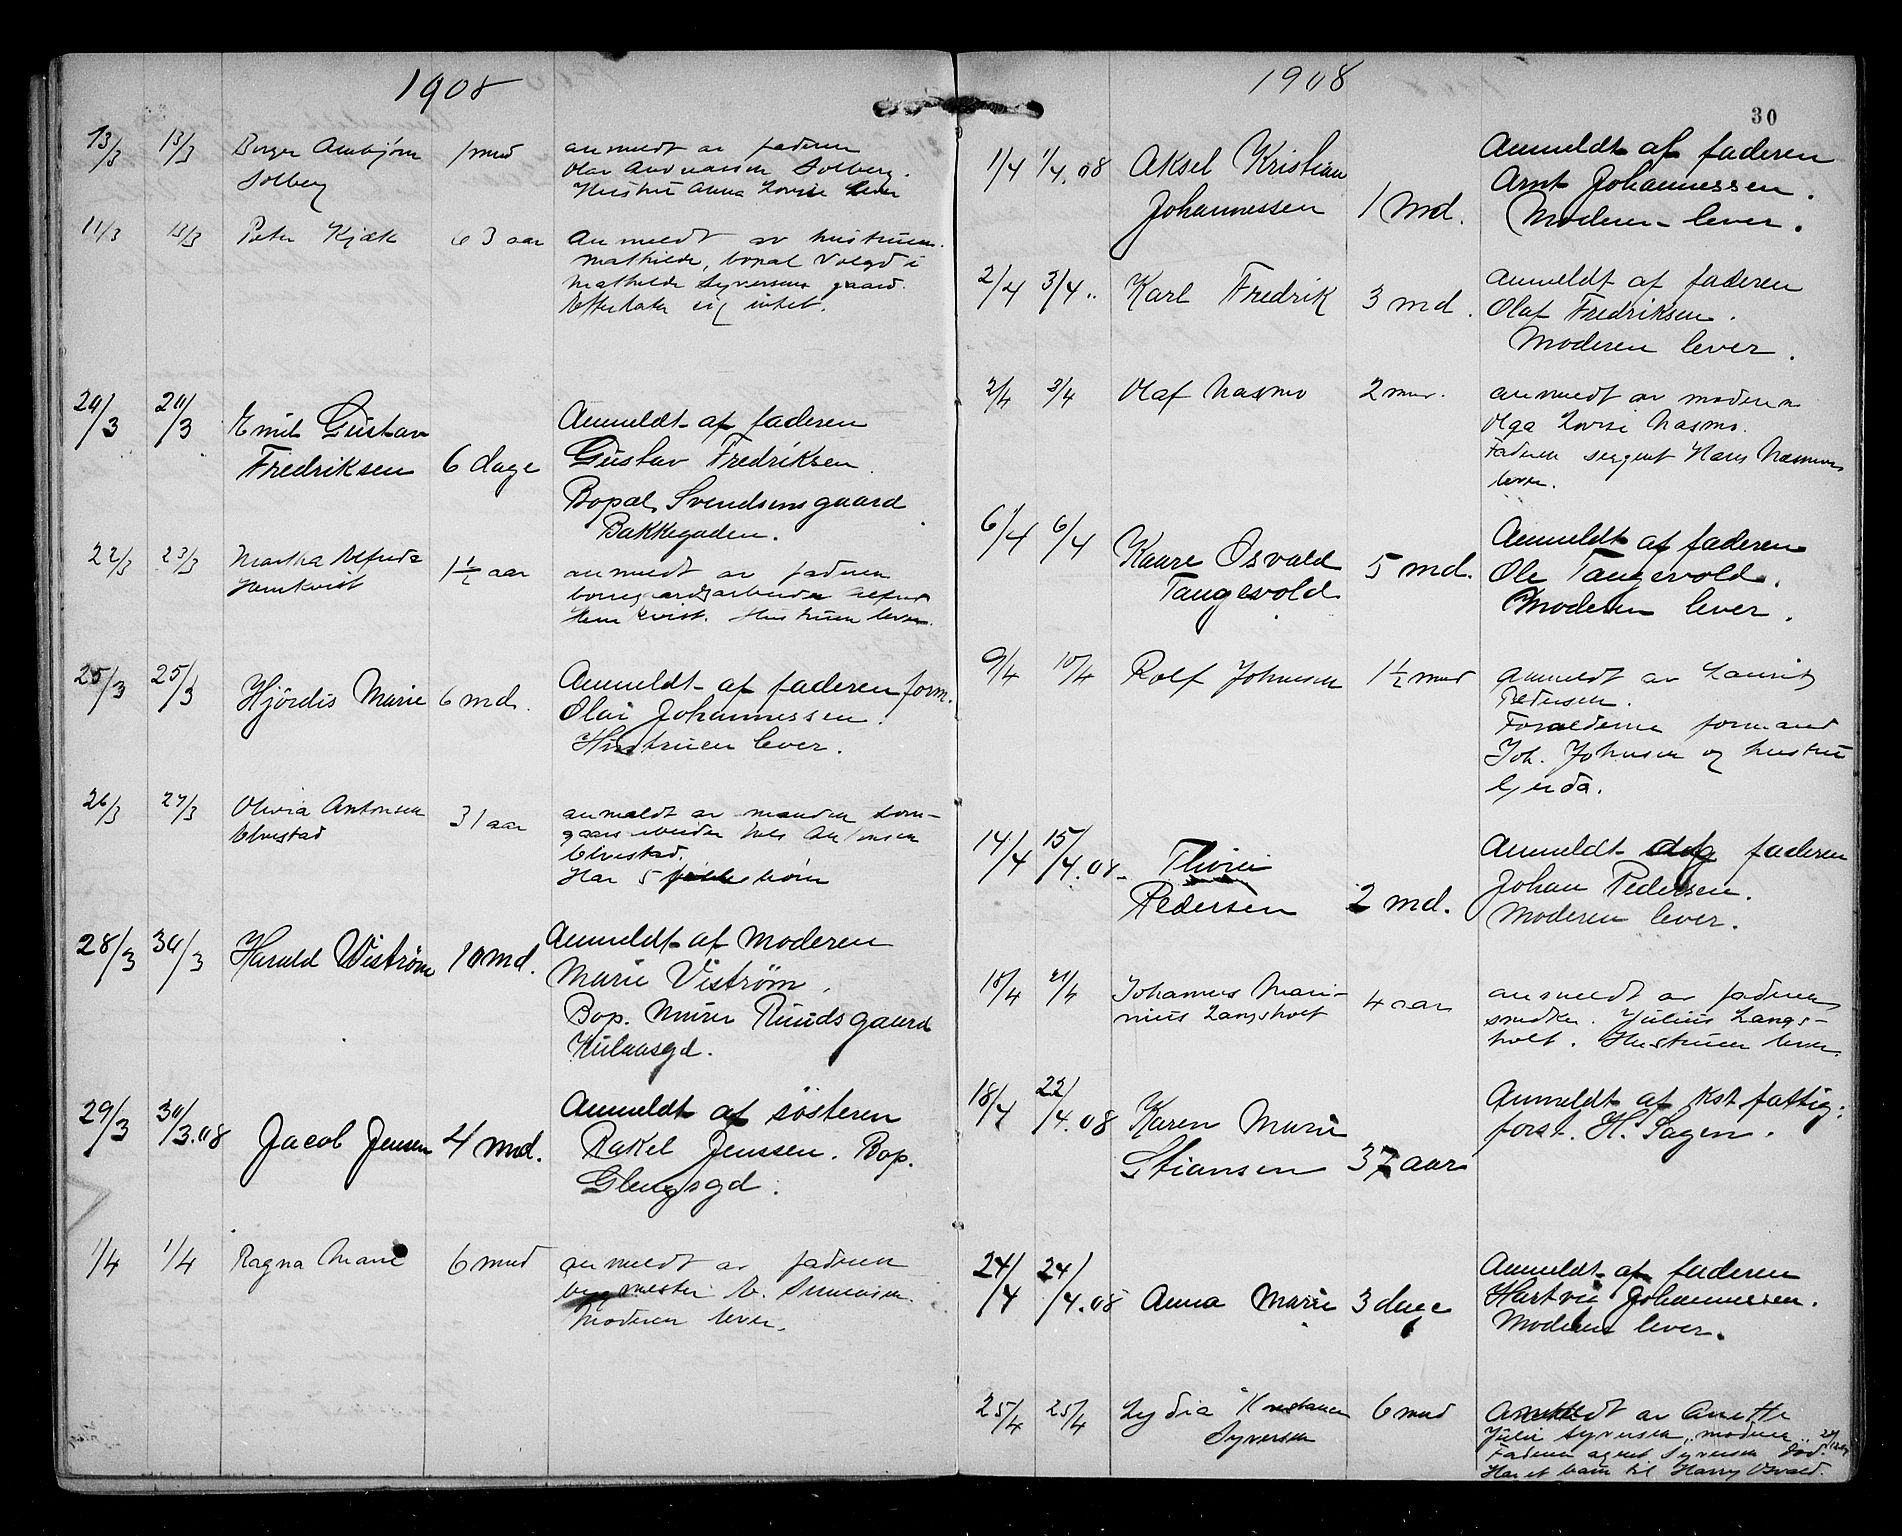 1908
13/3 13/3 Birger Arnbjørn 1 mnd anmeldt av faderen
Solberg Olav Andreassen Solberg.
Hustru Anna Lovise lever
11/3 13/3 Peter Kjæk 63 aar anmeldt av hustruen
Mathilde, bopæl Volgd i
Mathilde Syversens gaard.
Efterlater sig intet.
20/3 20/3 Emil Gustav Anmeldt af faderen
Fredriksen 6 dage Gustav Fredriksen.
Bopæl Svendsensgaard
Bakkegaden.
22/3 23/3 Martha Alfrida 1½ aar anmeldt av faderen
Hernkvist borregaardsarbeider Alfred
Hernkvist. Hustruen lever.
25/3 25/3 Hjördis Marie 6 md. Anmeldt af faderen form.
Olai Johannessen.
Hustruen lever.
26/3 27/3 Olivia Antonsen 31 aar anmeldt av manden
Elvestad Antonsen
Elvestad.
Har 5 børn
28/3 30/3 Harald Wiström 10 md. Anmeldt af moderen
Marie Viström.
Bop. Murer Ruuds gaard
Kulaasgd.
29/3 30/3.08 Jacob Jensen 4 md. Anmeldt af søsteren
Rakel Jenssen. Bop.
Glengsgd.
1/4 1/4 Ragna Marie 6 mnd anmeldt av faderen
bygmester
Moderen lever.
1908
30
1/4 1/4.08 Aksel Kristian Anmeldt af faderen
Johannessen 1 md. Arnt Johannessen.
Moderen lever.
2/4 3/4 " Karl Fredrik 3 md. Anmeldt af faderen
Olaf Fredriksen.
Moderen lever.
2/4 3/4 Olaf Næsmo 2 mnd. anmeldt av moderen
Olga Lovise Næsmo.
Faderen sergent Hans Næsmo
lever.
6/4 6/4 Kaare Osvald 5 md. Anmeldt af faderen
Tangevold Ole Tangevold.
Moderen lever.
9/4 10/4 Rolf Johnsen 1½ mnd anmeldt av Lauritz
Pedersen.
Forælderne formand
Joh. Johnsen og hustru
Gerda.
14/4 15/4.08 Anmeldt af faderen
Pedersen 2 md. Johan Pedersen.
Moderen lever.
18/4 21/4 Johannes Mari- 4 aar anmeldt av faderen
nius Langsholt snedker. Julius Langs-
holt. Hustruen lever.
18/4 22/4.08 Karen Marie Anmeldt af Kst fattig:
Stiansen 37 aar forst. H. Sagen.
24/4 24/4.08 Anna Marie 3 dage Anmeldt af faderen
Hartvig Johannessen.
Moderen lever.
25/4 25/4 Lydia Konstanse 6 mnd Anmeldt av Anette
Syversen Julie Syversen "moderen"
Faderen agent Syversen død.
Har et barn til Harry Osvald.